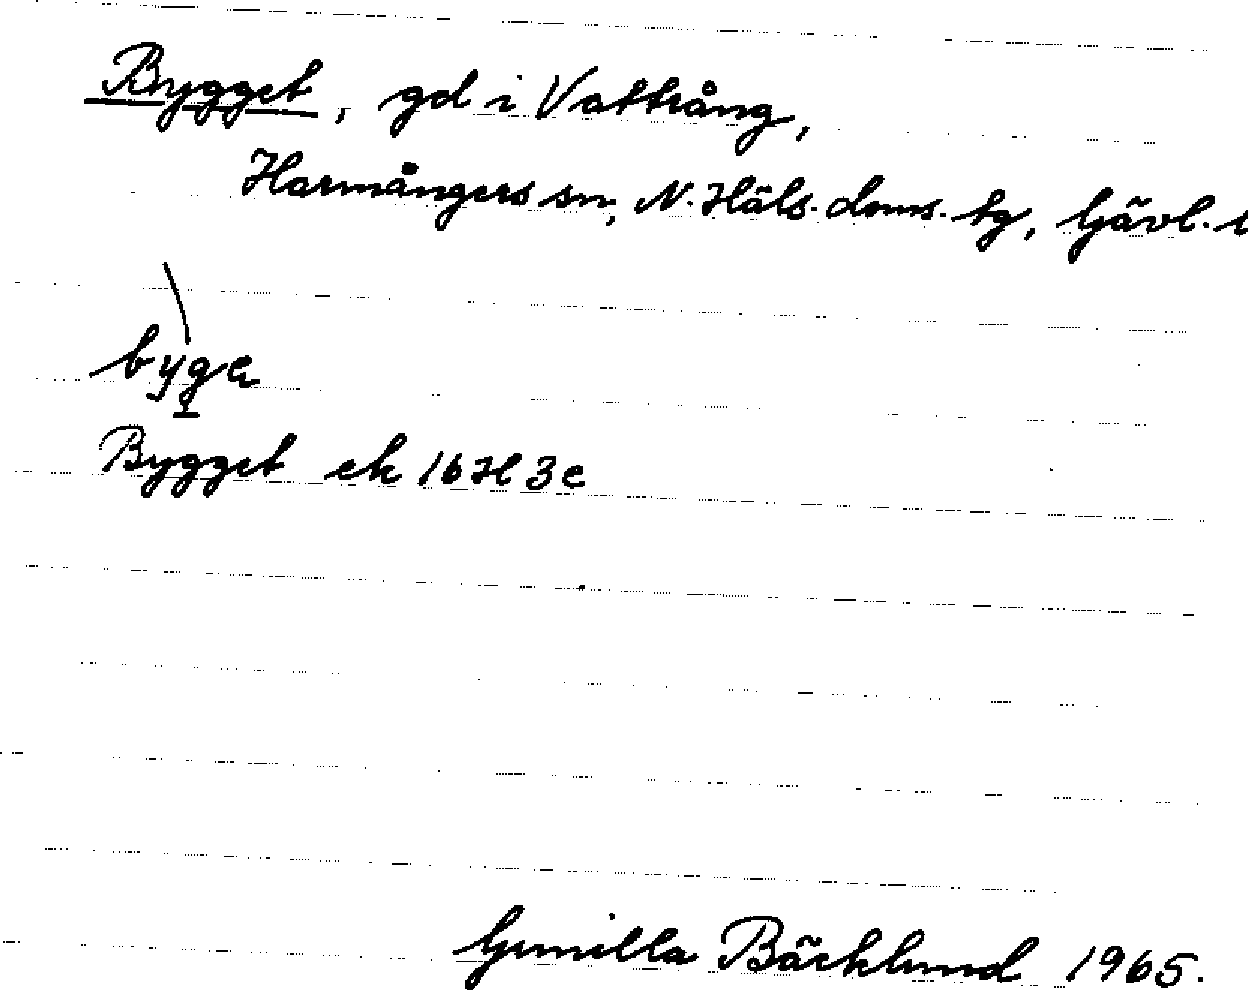 Bygget, gd i Vattrång,
Harmångers sn, N. Häls. doms. tg, Gävl. l
byge
Bygget ek 16H 3e
Gunilla Bäcklund 1965.